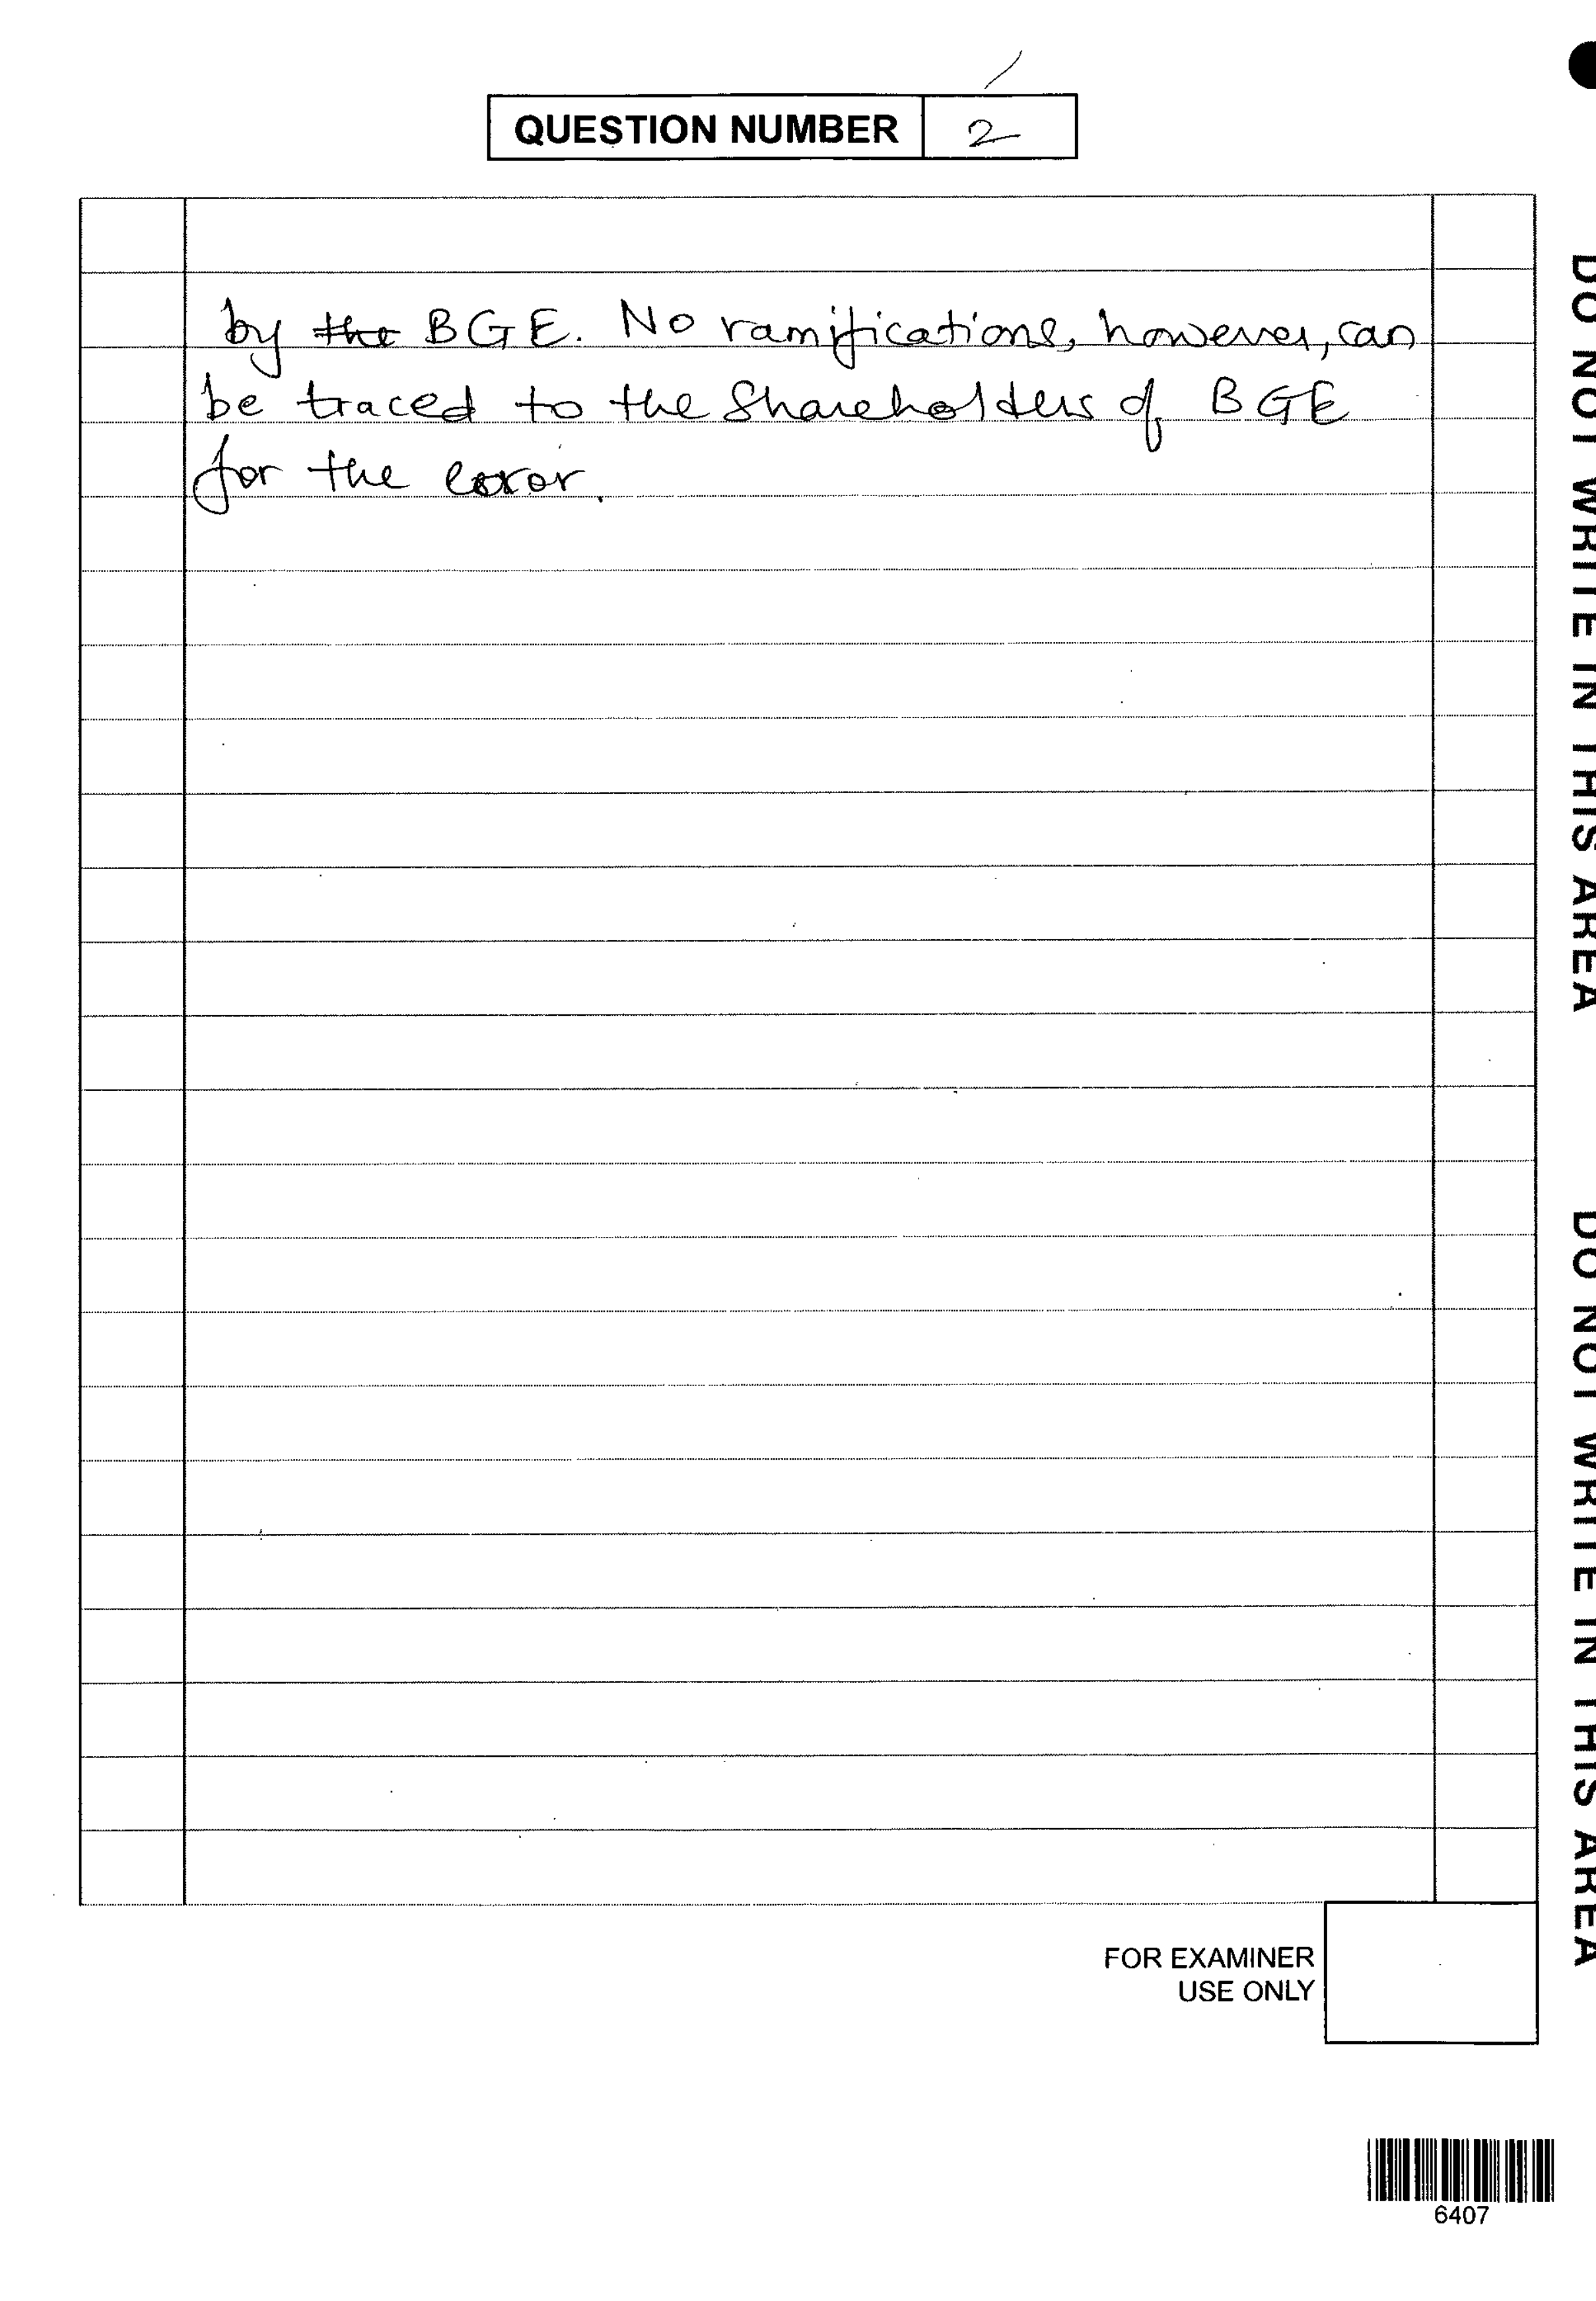 QUESTION NUMBER 2
by the BGE. No ramifications, however, can
be traced to the Shareholders of BGE
for the error.
FOR EXAMINER
USE ONLY
6407
DO NOT WRITE IN THIS AREA
DO NOT WRITE IN THIS AREA